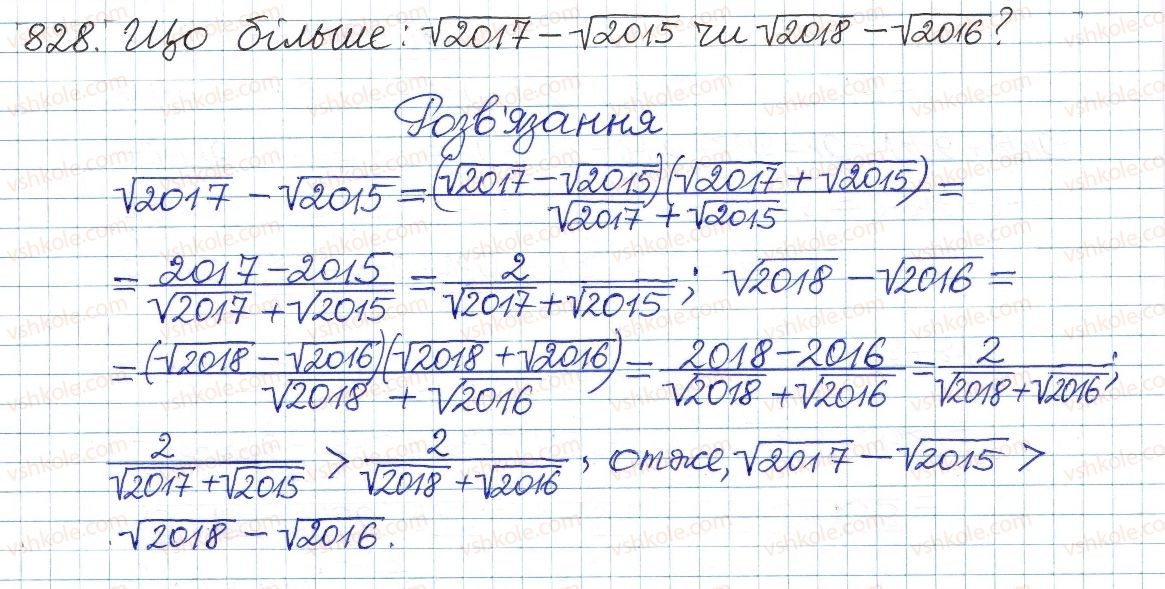 828. Що більше: √2017 − √2015 чи √2018 − √2016?
Розв'язання
√2017 − √2015 = (√2017 − √2015)(√2017 + √2015) / (√2017 + √2015) =
= (2017 − 2015) / (√2017 + √2015) = 2 / (√2017 + √2015); √2018 − √2016 =
= (√2018 − √2016)(√2018 + √2016) / (√2018 + √2016) = (2018 − 2016) / (√2018 + √2016) = 2 / (√2018 + √2016);
2 / (√2017 + √2015) > 2 / (√2018 + √2016), отже, √2017 − √2015 >
√2018 − √2016.